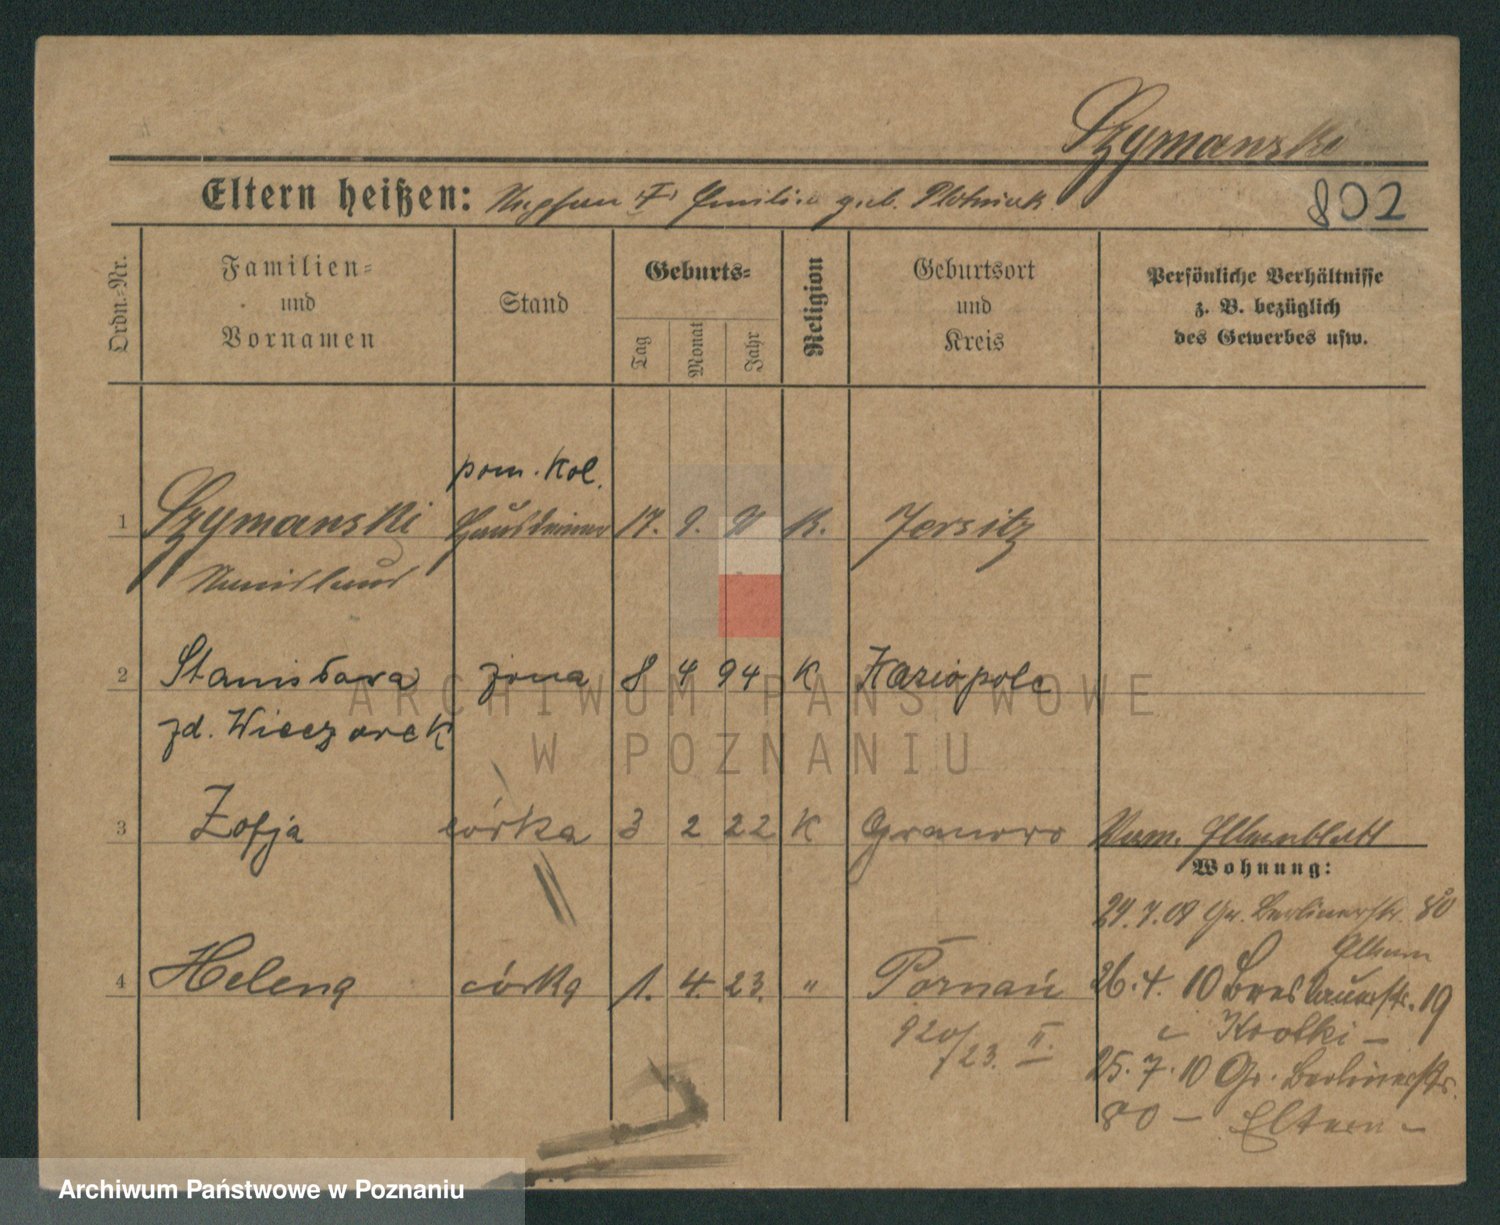 Szymanski
Eltern heißen: Emilie geb. Plotniak
802
Ordn.-Nr.
Familien-
und
Vornamen
Stand
Geburts-
Tag
Monat
Jahr
Religion
Geburtsort
und
Kreis
Persönliche Verhältnisse
z. B. bezüglich
des Gewerbes usw.
pom. Kol.
1 Szymanski Hausdiener 17. 9. K. Jersitz
2 Stanisława żona 8 4 94 K
zd. Wieczorek
3 Zofja córka 3 2 22 K Granowo Vom Elternblatt
Wohnung:
29.7.09 Gr. Berlinerstr. 80
Eltern
4 Helena córka 1. 4. 23. " Poznań 26.4.10 Breslauerstr. 19
920/23. II.
25.7.10 Gr. Berlinerstr.
80 – Eltern –
ARCHIWUM PAŃSTWOWE
W POZNANIU
Archiwum Państwowe w Poznaniu